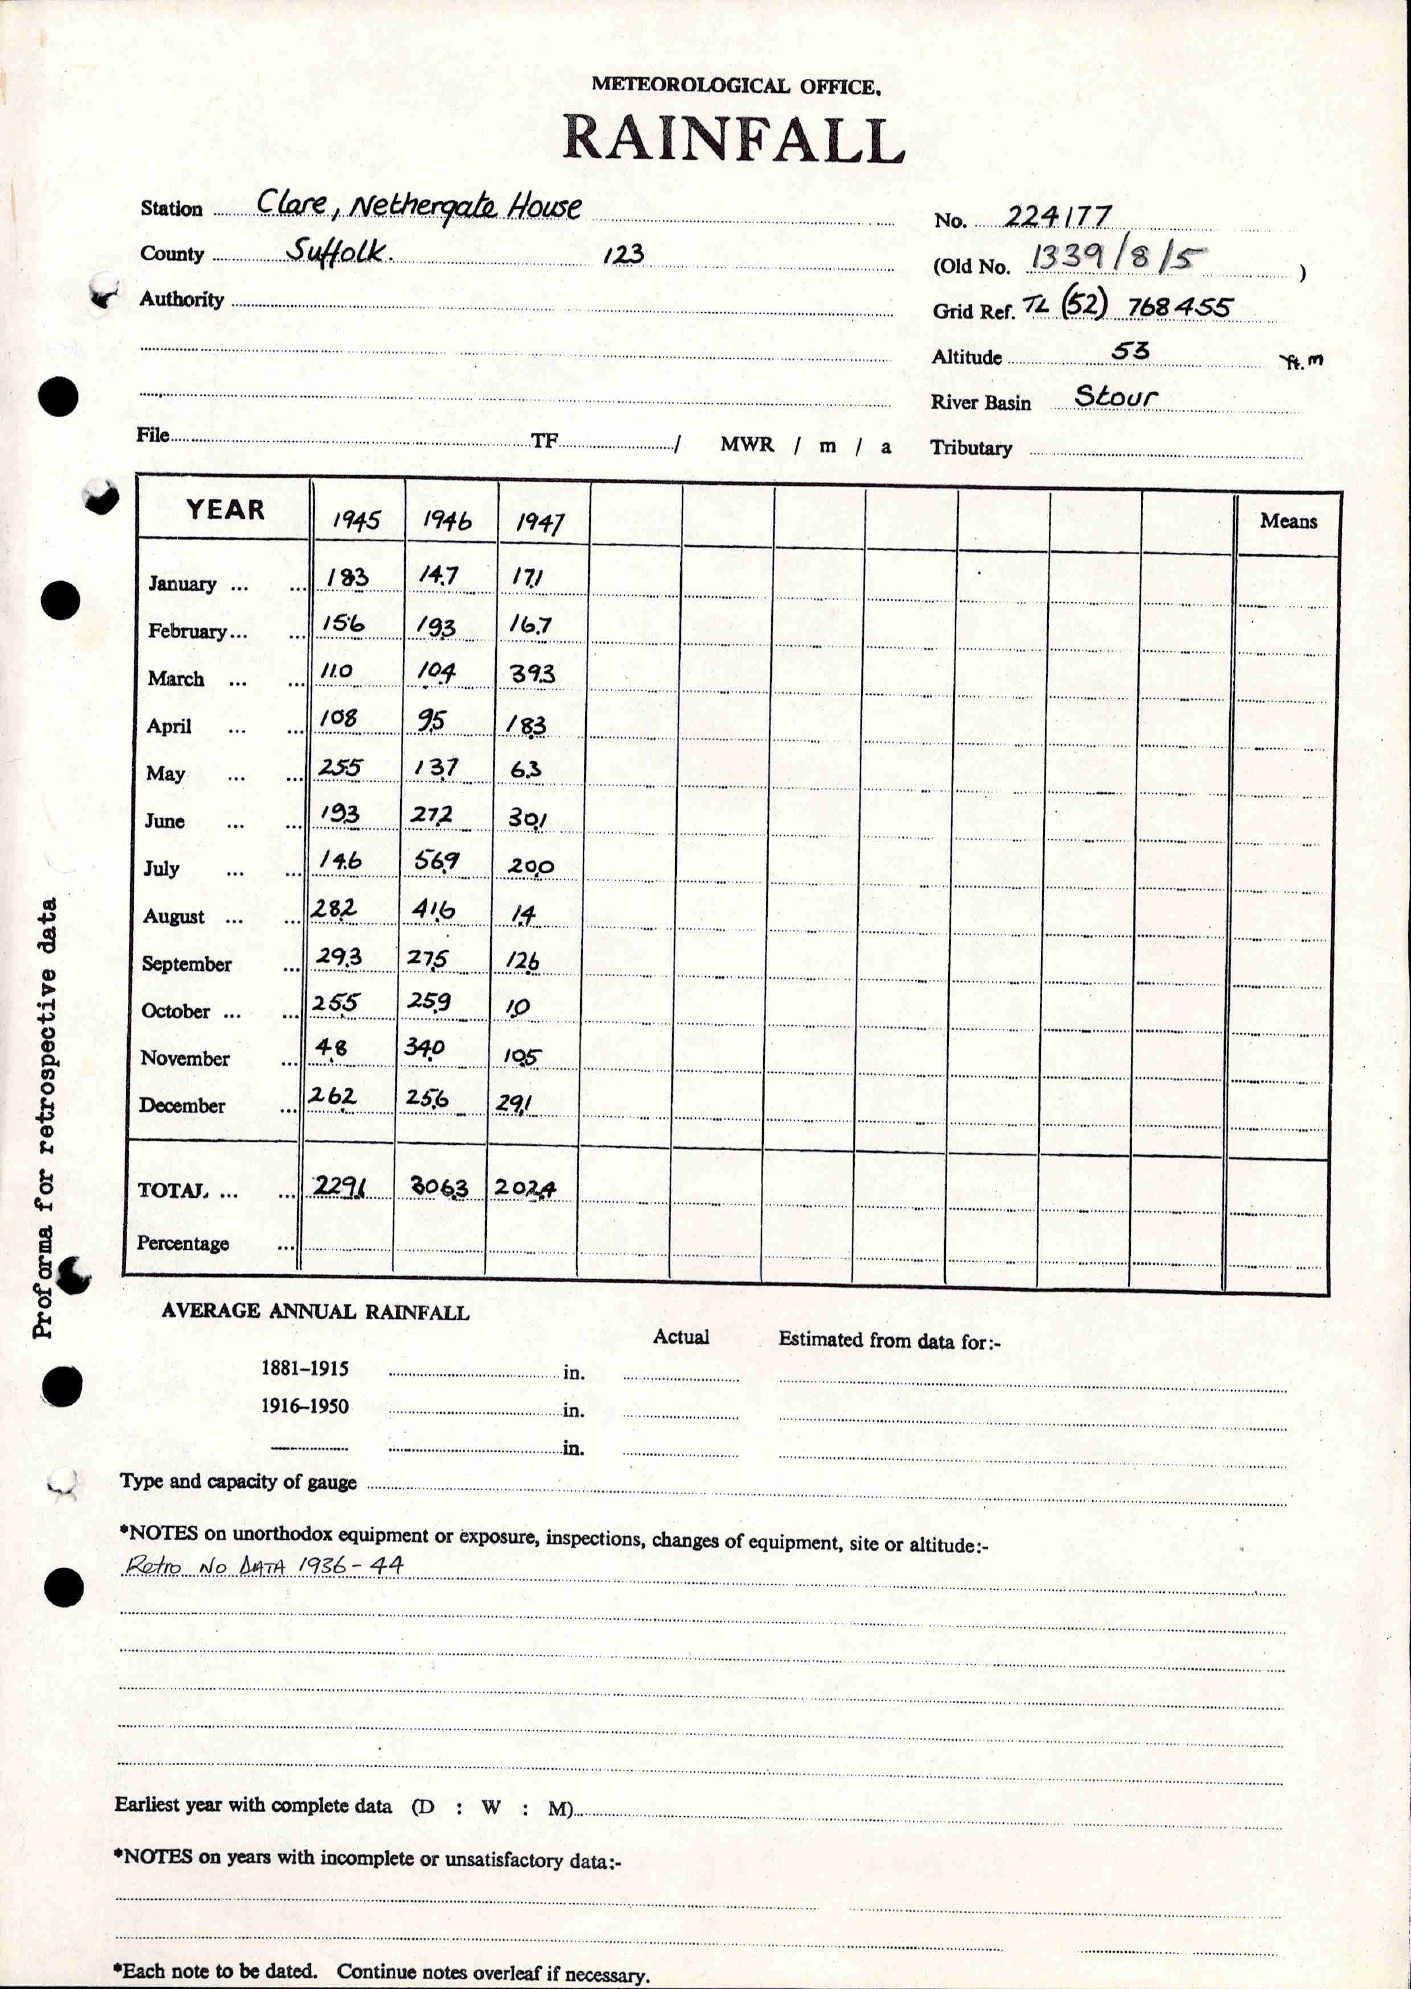 METEOROLOGICAL OFFICE.
RAINFALL
Station Clare, Nethergate House No. 224177
County Suffolk. 123 (Old No. 1339/8/5 )
Authority Grid Ref. TL (52) 768455
Altitude 53 ft. m
River Basin Stour
File TF / MWR / m / a Tributary
YEAR 1945 1946 1947 Means
January ... ... 18.3 14.7 17.1
February... ... 15.6 19.3 16.7
March ... ... 11.0 10.4 39.3
April ... ... 10.8 9.5 18.3
May ... ... 25.5 13.7 6.3
June ... ... 19.3 27.2 30.1
July ... ... 14.6 56.9 20.0
August ... ... 28.2 41.6 1.4
September ... 29.3 27.5 12.6
October ... ... 25.5 25.9 1.0
November ... 4.8 34.0 10.5
December ... 26.2 25.6 29.1
TOTAL ... ... 229.1 306.3 202.4
Percentage ...
Proforma for retrospective data
AVERAGE ANNUAL RAINFALL
Actual Estimated from data for:-
1881–1915 in.
1916–1950 in.
in.
Type and capacity of gauge
*NOTES on unorthodox equipment or exposure, inspections, changes of equipment, site or altitude:-
Retro NO DATA 1936-44
Earliest year with complete data (D : W : M)
*NOTES on years with incomplete or unsatisfactory data:-
*Each note to be dated. Continue notes overleaf if necessary.